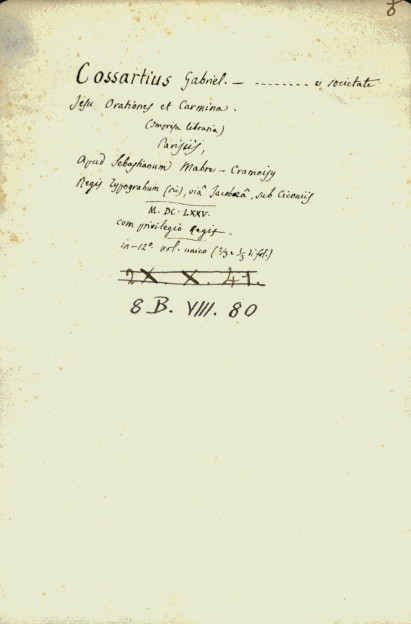 8
Cossartius Gabriel. — ......... e societate
Jesu Orationes et Carmina.
(Impresa libraria)
Parisiis,
Apud Sebastianum Mabre-Cramoisy
Regis Typograhum (sic), viâ Jacobæâ, sub Ciconiis
M. DC. LXXV.
cum privilegio Regis.
in-12º. vol. unico (2/3 e 1/3 di fol.)
2X. X. 41.
8 B. VIII. 80